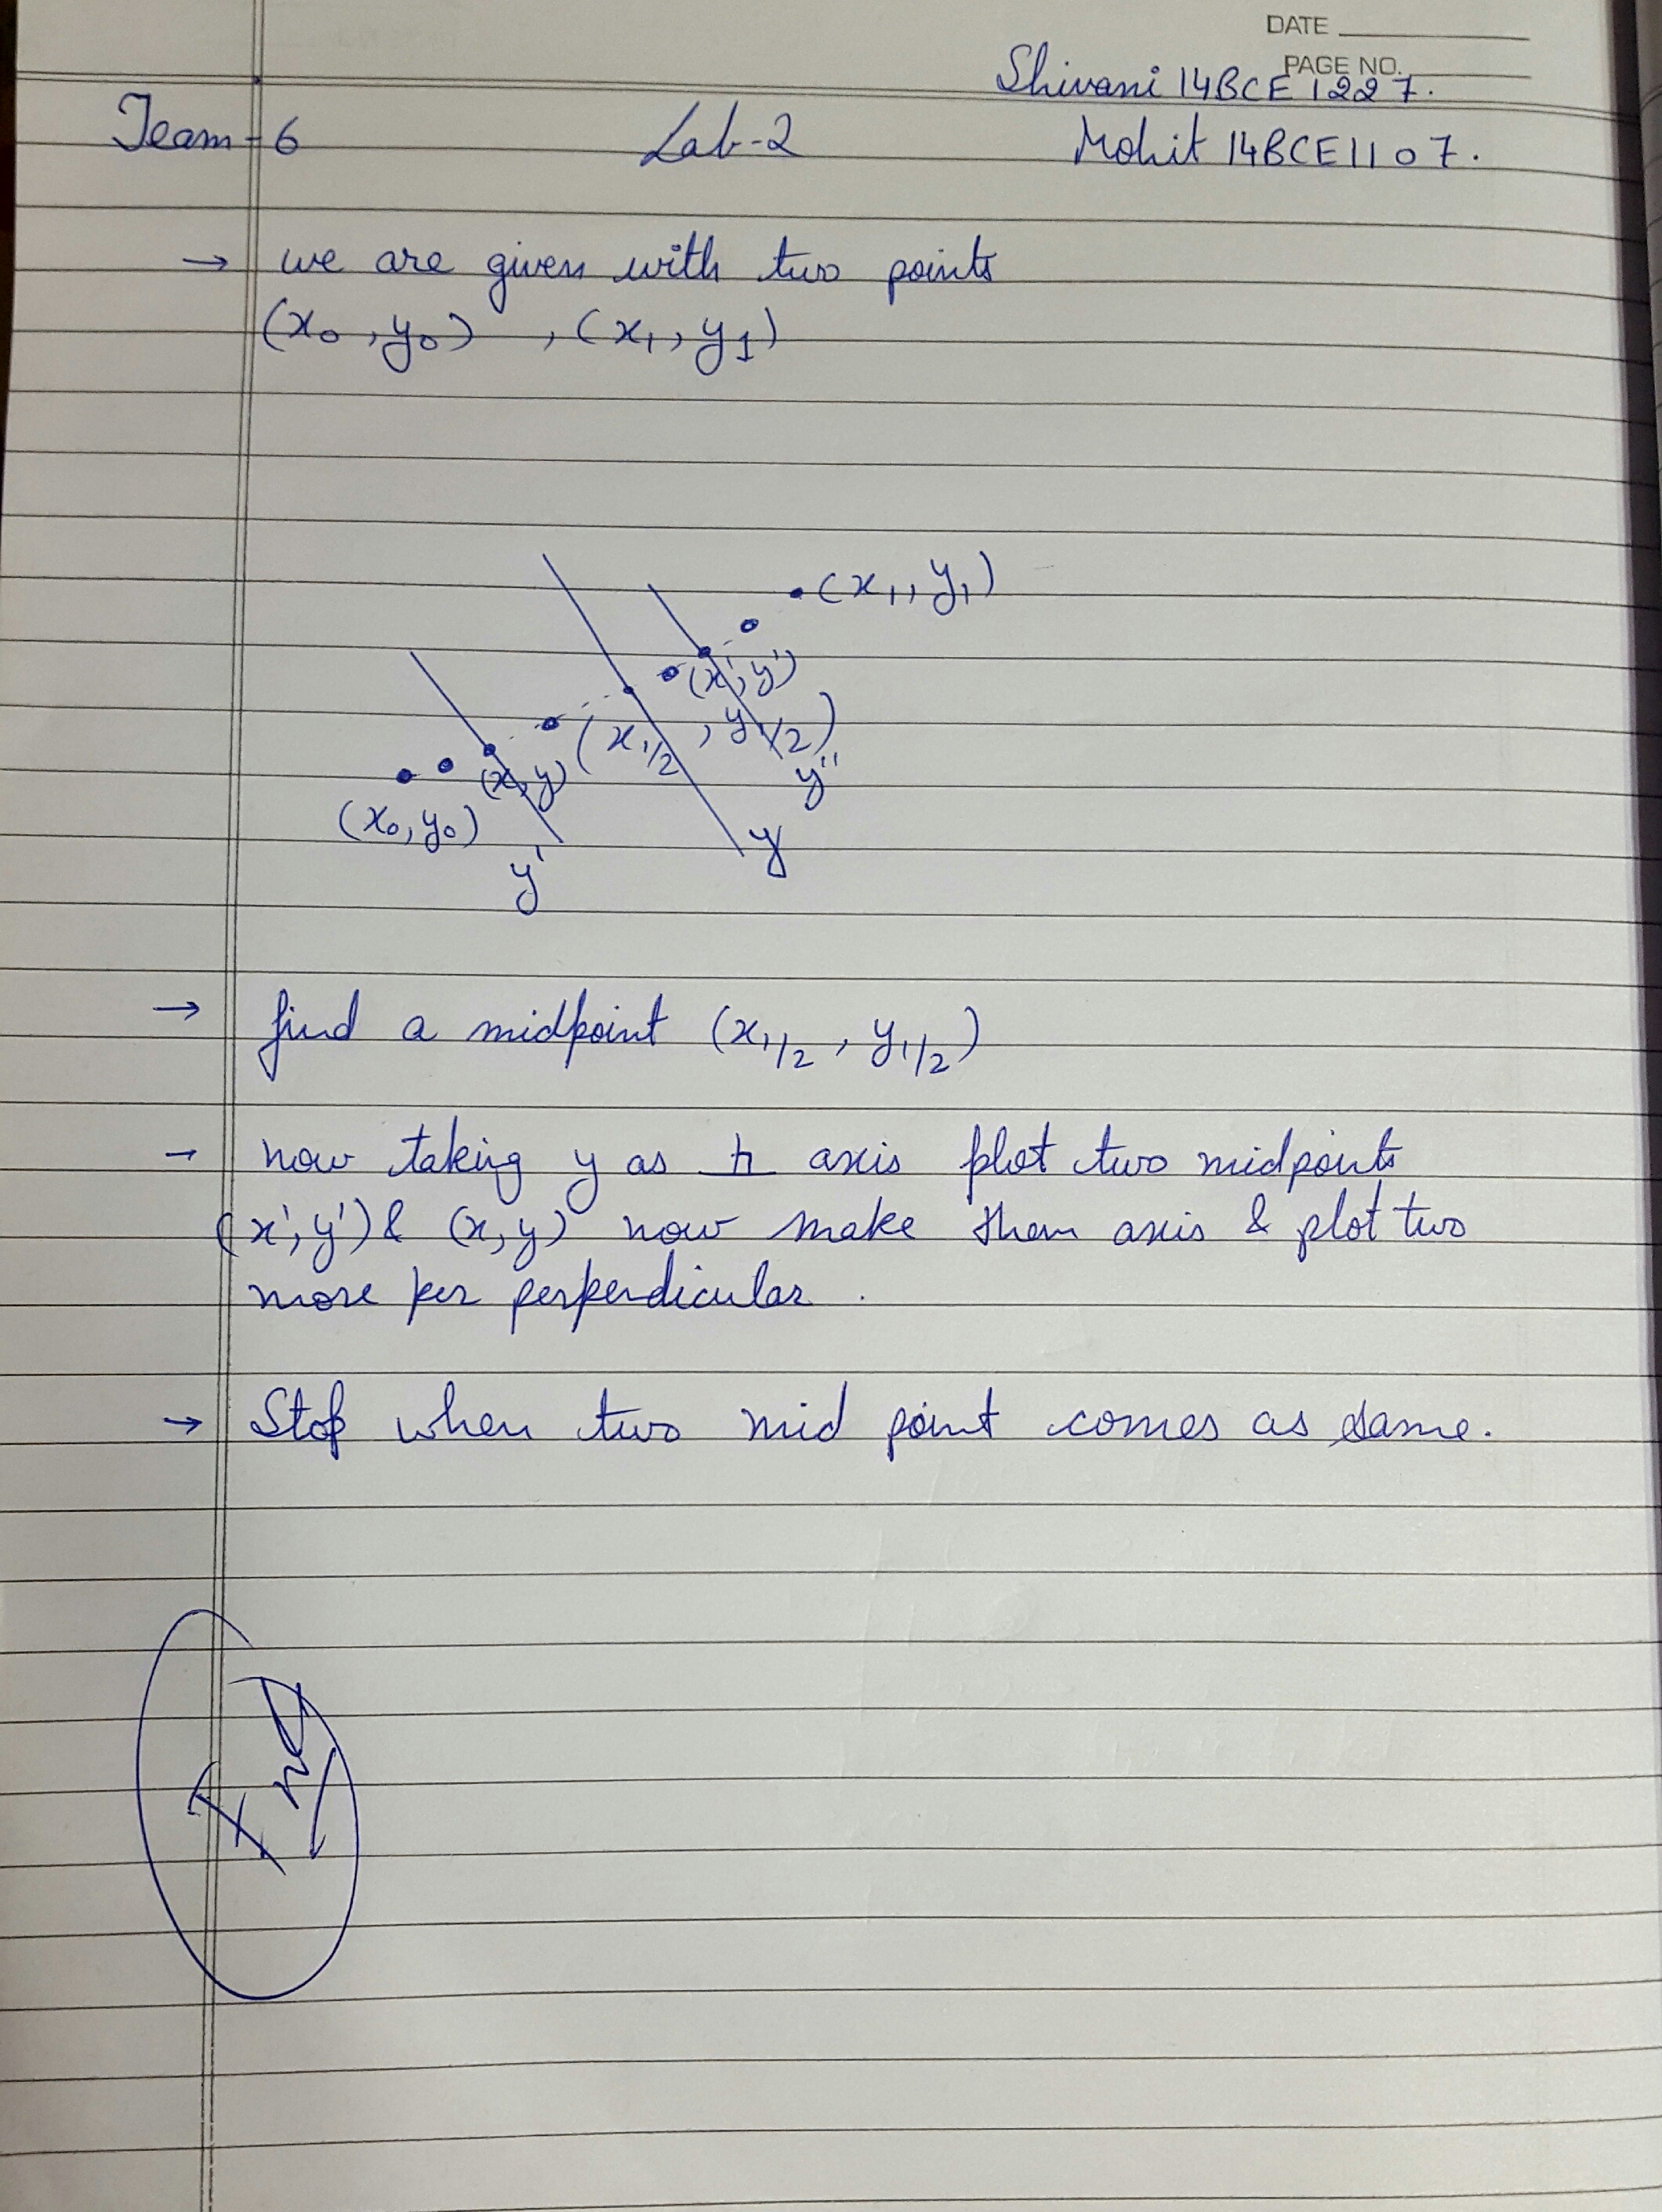 DATE
PAGE NO.
Shivani 14BCE1227.
Team-6 Lab-2 Mohit 14BCE1107.
→ we are given with two points
(x₀, y₀) , (x₁, y₁)
(x₁, y₁)
(x', y')
(x₁/₂ , y₁/₂)
(x, y)
y''
(x₀, y₀)
y
y'
→ find a midpoint (x₁/₂ , y₁/₂)
→ now taking y as axis plot two midpoints
(x', y') & (x, y) now make them axis & plot two
more per perpendicular.
→ Stop when two mid point comes as same.